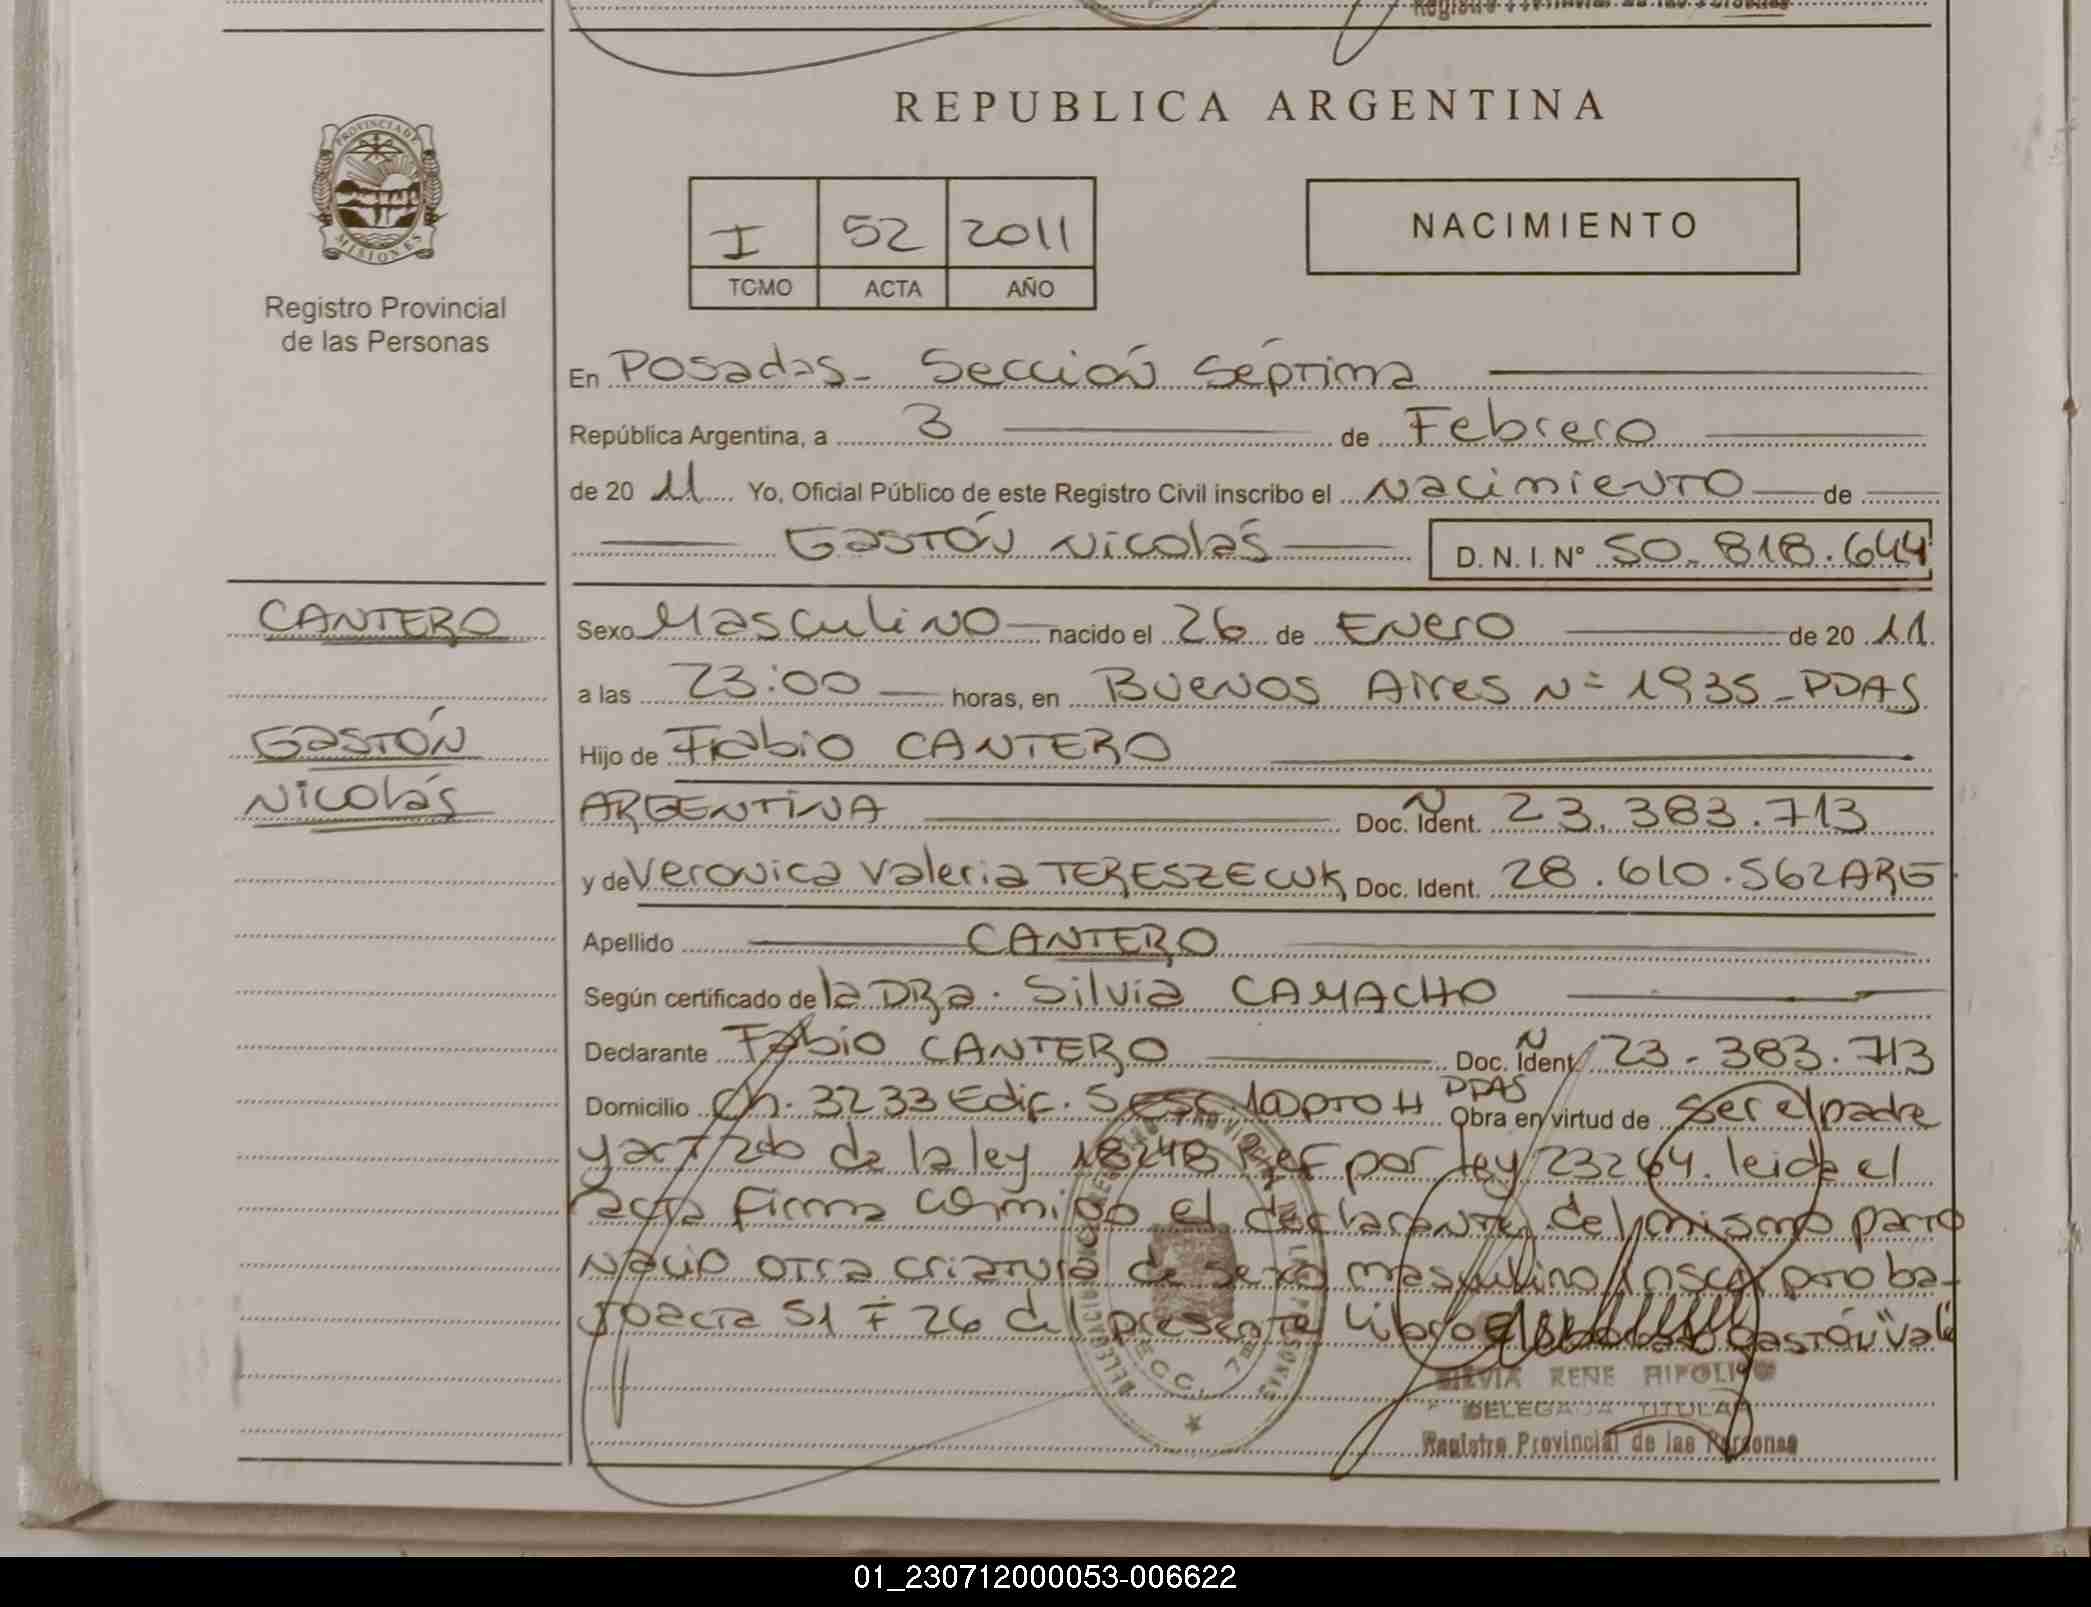 Registro Provincial de las Personas
REPUBLICA ARGENTINA
PROVINCIA DE
MISIONES
Registro Provincial
de las Personas
I 52 2011
TOMO ACTA AÑO
NACIMIENTO
En Posadas - Sección Séptima
República Argentina, a 3 de Febrero
de 20 11 Yo, Oficial Público de este Registro Civil inscribo el Nacimiento de
Gastón Nicolás D. N. I. N° 50.818.644
CANTERO
Gastón
Nicolás
Sexo Masculino nacido el 26 de Enero de 20 11
a las 23:00 horas, en Buenos Aires N= 1935 - PDAS
Hijo de Fabio CANTERO
ARGENTINA Doc. Ident. N 23.383.713
y de Veronica Valeria TERESZECUK Doc. Ident. 28.610.562 ARG
Apellido CANTERO
Según certificado de la DRa. Silvia CAMACHO
Declarante Fabio CANTERO Doc. Ident. N 23.383.713
Domicilio Ch. 3233 Edif. 5 esc. 10 DPTO H PDAS Obra en virtud de ser el padre
y art 2do de la ley 18248 Ref por ley 23264. leida el
acta firma conmigo el declarante. del mismo parto
nació otra criatura de sexo masculino insc. pto ba-
jo acta 51 F 26 del presente libro Gastón "Vale"
SILVIA RENE RIPOLI
DELEGADA TITULAR
Registro Provincial de las Personas
SECC. 7ma
01_230712000053-006622